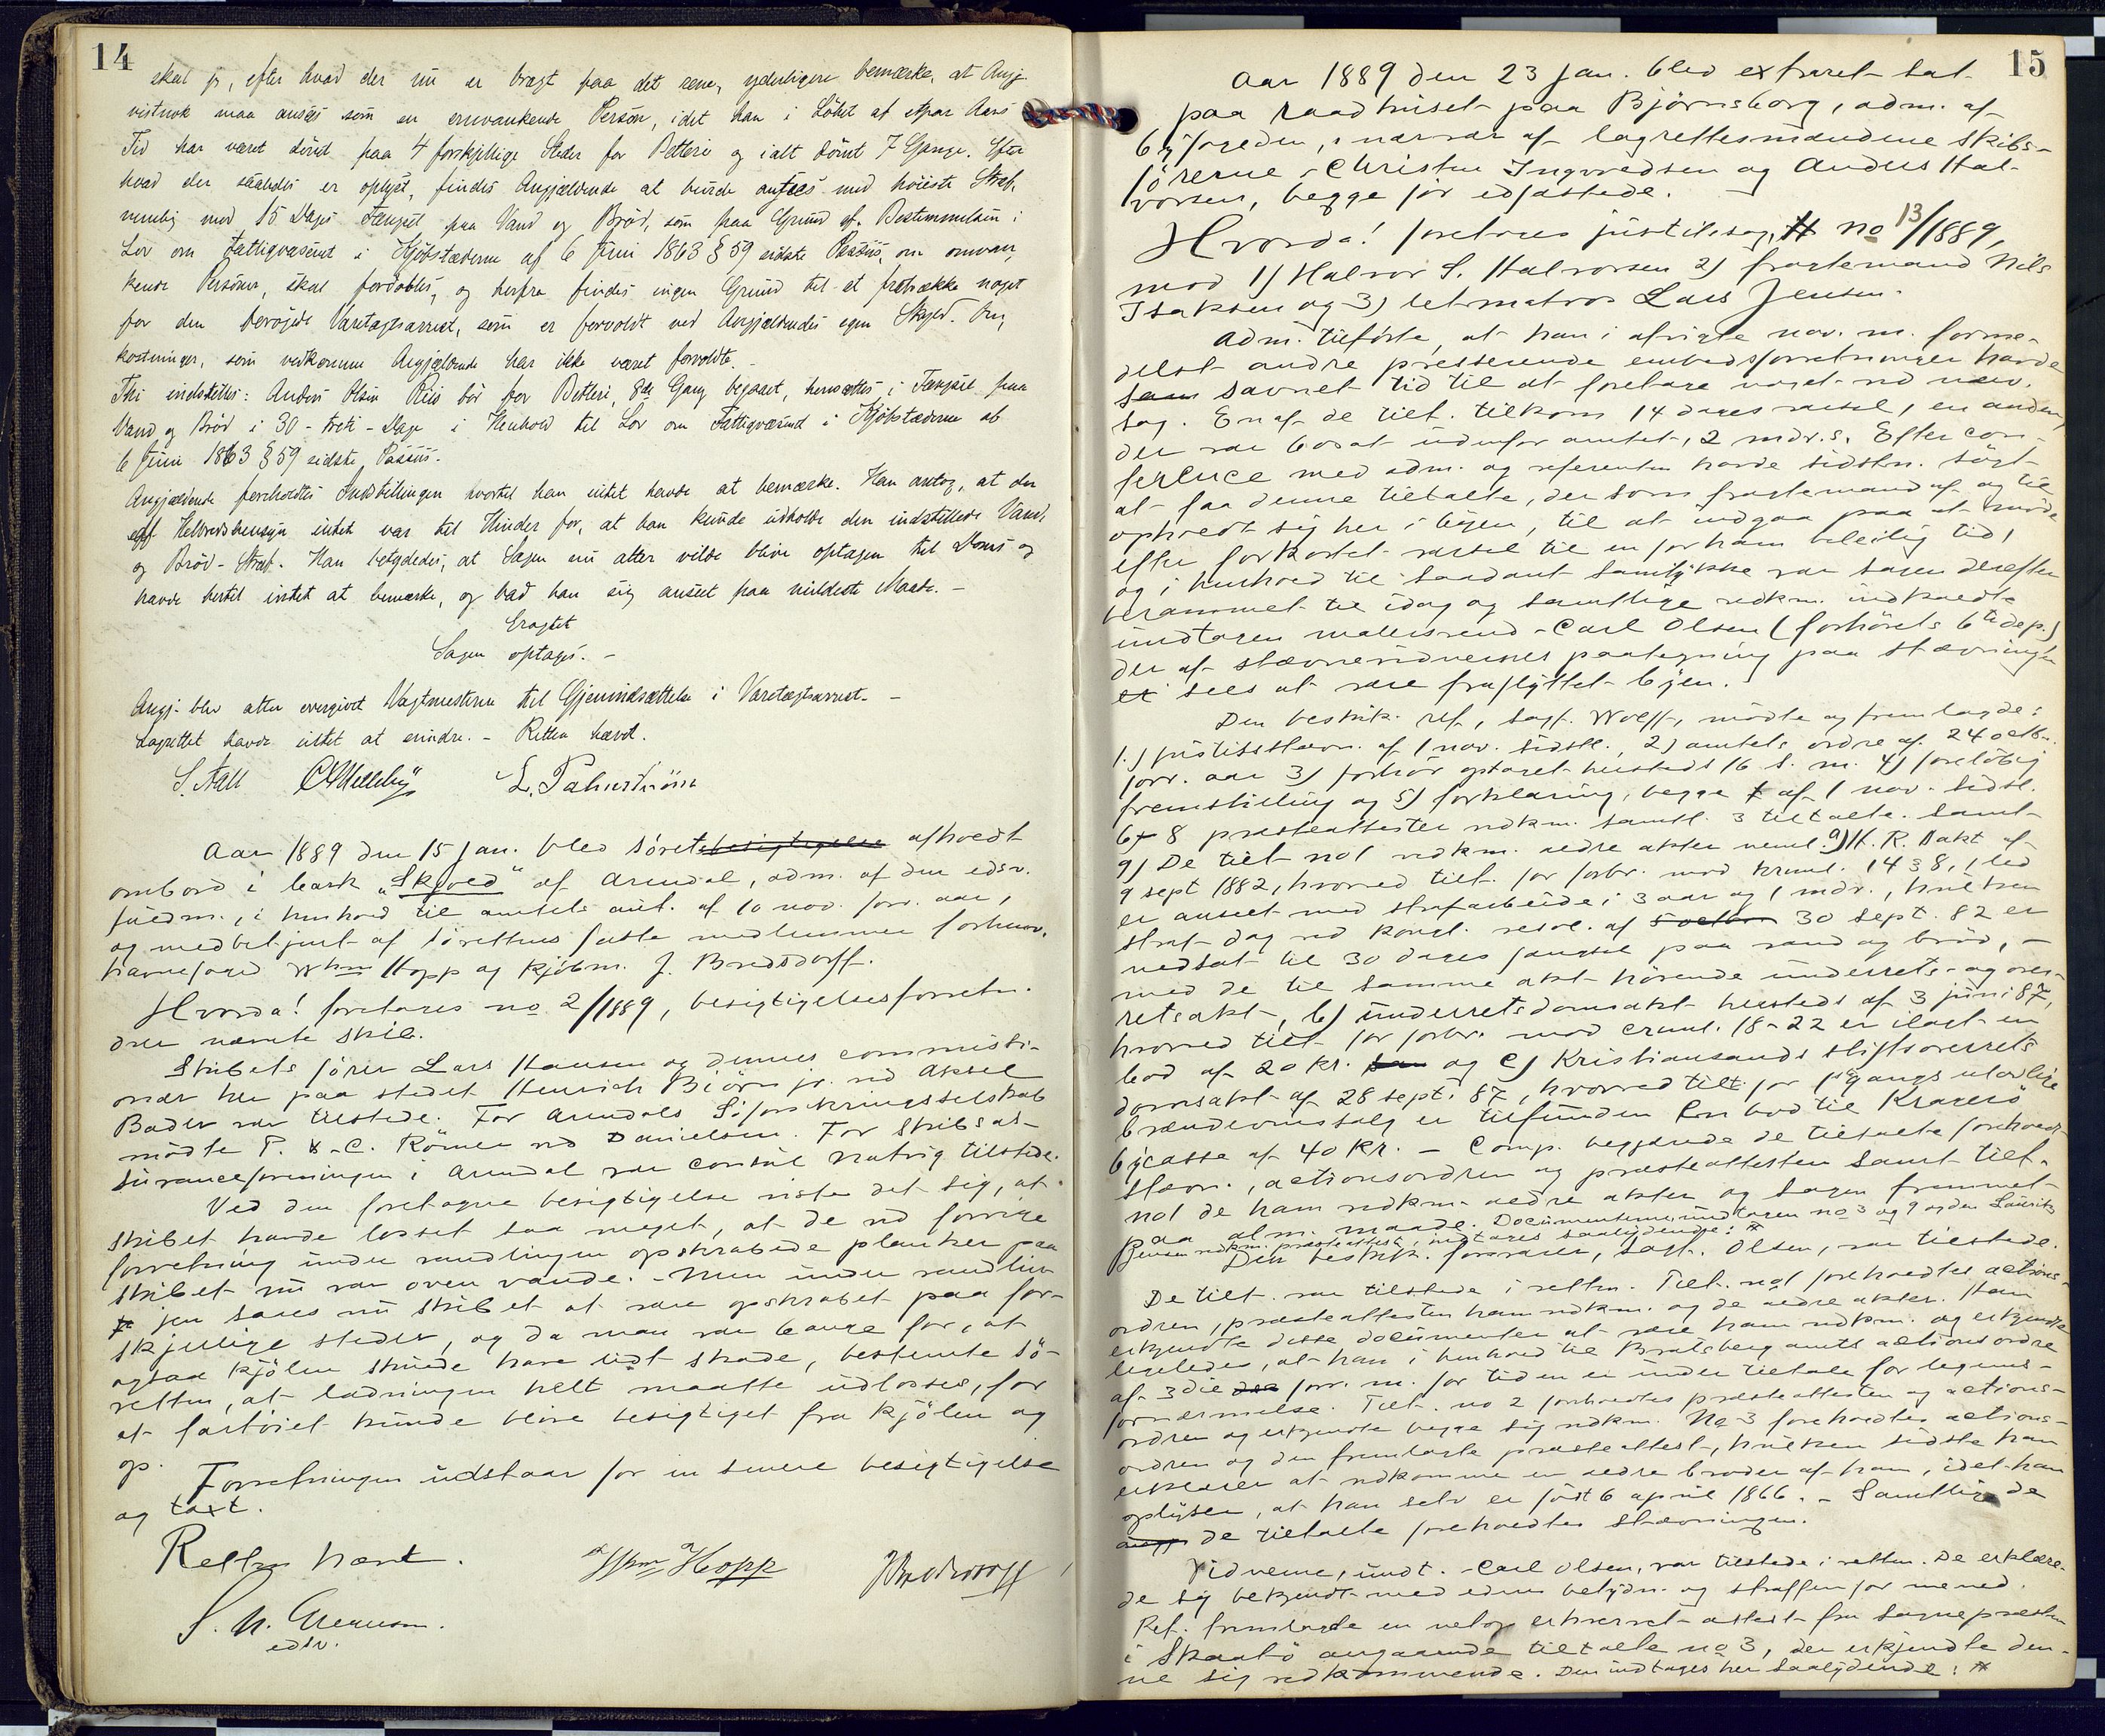 14
skal jo, efter hvad der nu er bragt paa det rene, yderligere bemærke, at Angj.
vistnok maa ansees som en omvankende Person, idet han i Løbet af et par Aars
Tid har været dømt paa 4 forskjellige Steder for Betleri og ialt dømt 7 Gange. Efter
hvad der saaledes er oplyst, findes Angjældende at burde ansees med høieste Straf,
nemlig med 15 Dages Fængsel paa Vand og Brød, som paa Grund af Bestemmelsen i
Lov om Fattigvæsenet i Kjøbstæderne af 6 Juni 1863 § 59 sidste Passus, om omvan-
kende Personer, skal fordobles, og herfra findes ingen Grund til at fratrække noget
for den Varetægtsarrest, som er forvoldt ved Angjældendes egen Skyld. Om-
kostninger, som vedkomme Angjældende har ikke været forvoldte.
Thi indstilles: Anders Olsen Riis bør for Betleri, 8de Gang begaaet, hensættes i Fængsel paa
Vand og Brød i 30 - treti - Dage i Henhold til Lov om Fattigvæsenet i Kjøbstæderne af
6 Juni 1863 § 59 sidste Passus.
Angjældende foreholdtes Indstillingen hvortil han intet havde at bemærke. Han antog, at der
af Helbredshensyn intet var til Hinder for, at han kunde udholde den indstillede Vand,
og Brød-Straf. Han betydedes, at Sagen nu atter vilde blive optagen til Doms og
havde hertil intet at bemærke, og bad han sig anseet paa mildeste Maade. -
Eragtet
Sagen optages. -
Angj. blev atter overgivet Vagtmesteren til Gjenindsættelse i Varetægtsarrest. -
Lagrettet havde intet at erindre. - Retten hævet.
S. Aall L. Palmström
Aar 1889 den 15 Jan. blev söret besigtigelse afholdt
ombord i bark "Skjold" af Arendal, adm. af den edsv.
fuldm., i henhold til amtets ant. af 10 nov. forr. aar,
og med betjent af sörettens faste medlemmer forhenv.
havnefoged Whm Hopp og kjöbm. J. Bredsdorff.
Hvorda! foretages no 2/1889, besigtigelsesforretn.
over nævnte skib.
Skibets förer Lars Hansen og dennes commissi-
onær her paa stedet Henrich Biörn jr. ved Aksel
Bader var tilstede. For Arendals Söforsikringsselskab
mödte P. & C. Römer ved Danielsen. For Skibsas-
suranceforeningen i Arendal var consul Natvig tilstede.
Ved den foretagne besigtigelse viste det sig, at
skibet havde losset saa meget, at de ved forrige
forretning under vandlinjen opskrabede planker paa
skibet nu var oven vande. - Men under vandlin-
jen saaes nu skibet at være opskrabet paa for-
skjellige steder, og da man var bange for, at
ogsaa kjölen skulde have lidt skade, bestemte sö-
retten, at ladningen helt maatte udlosses, for
at fartöiet kunde blive besigtiget fra kjölen og
op.
Forretningen udstaar for en senere besigtigelse
og taxt.
Retten hævet.
Whm Hopp JBredsdorff
edsv.
15
Aar 1889 den 23 Jan. blev extraret sat
paa raadhuset paa Björnsborg, adm. af
byfogeden, i nærvær af lagrettesmændene skibs-
förerne Christen Ingvordsen og Anders Hal-
vorsen, begge för edfæstede.
Hvorda! foretages justitssag no 13/1889,
mod 1) Halvor S. Halvorsen 2) fragtemand Nils
Isaksen og 3) letmatros Lars Jensen.
Adm. tilförte, at han i afvigte nov. m. forme-
delst andre presserende embedsforretninger havde
savnet tid til at foretage noget ved nærv.
sag. En af de tilt. tilkom 14 dages varsel, en anden,
der var bosat udenfor amtet, 2 mdr.s. Efter con-
ference med adm. og referenten havde sidstn. sögt
at faa denne tiltalte, der som fragtemand af og til
opholdt sig her i byen, til at indgaa paa at möde
efter forkortet varsel til en for ham beleilig tid,
og i henhold til saadant samtykke var sagen derefter
berammet til idag og samtlige vedkm. indkaldte
undtagen malersvend Carl Olsen (forhörets 6te dep.)
der af stævnevidnernes paategning paa stævningen
sees at være fraflyttet byen.
Den beskik. ref, sagf. Wolff, mödte og fremlagde:
1.) justitsstævn. af 1 nov. sidstl., 2) amtets ordre af 24 octbr.
forr. aar 3) forhör optaget hersteds 16 s. m. 4) forelöbig
fremstilling og 5) forklaring, begge af 1 nov. sidstl.
6 - 8 præsteattester vedkm. samtl. 3 tiltalte. samt
9) De tilt. no 1 vedkm. ældre akter neml. a) H. R. Dakt af
9 sept 1882, hvorved tilt. for forbr. mod kriml. 14 3 8, 1 led
er anseet med strafarbeide i 3 aar og 1 mdr., hvilken
straf dog ved kongl. resol. af 5 octbr 30 sept. 82 er
nedsat til 30 dages fængsel paa vand og bröd, -
med de til samme akt hörende underrets- og over-
retsakt, b) underretsdomsakt hersteds af 3 juni 87,
hvorved tilt for forbr. mod criml. 18-22 er ilagt en
bod af 20 kr. og c) Kristiansands stiftsoverrets
domsakt af 28 sept. 87, hvorved tilt. for gangs ulovlige
brændevinssalg er tilfunden en bod til Kragerö
bycasse af 40 kr. - Comp. begjærede de tiltalte foreholdt
stævn., actionsordren og præsteattesten samt tilt.
no 1 de ham vedkm. ældre akter og sagen fremmet
paa alm. maade. Documenterne, undtagen no 3 og 9 og den Laurits
Jensen vedkm. præsteattest, indtages saalydende:
Den beskik. forsvarer, sagf. Olsen, var tilstede.
De tilt. var tilstede i retten. Tilt. no 1 foreholdtes actions-
ordren, præsteattesten ham vedkm. og de ældre akter. Han
erkjendte disse documenter at være ham vedkm. og erkjendte
ligeledes, at han i henhold til Bratsberg amts actionsordre
af 3die forr. m. for tiden er under tiltale for legems-
fornærmelse. Tilt. no 2 foreholdtes præsteattesten og actions-
ordren og erkjendte begge sig vedkm. No 3 foreholdtes actions-
ordren og den fremlagte præsteattest, hvilken sidste han
erklærer at vedkomme en ældre broder af ham, idet han
oplyser, at han selv er födt 6 april 1866. - Samtlige de
de tiltalte foreholdtes stævningen.
Vidnerne, undt. Carl Olsen, var tilstede i retten. De erklære-
de sig bekjendt med edens betydn. og straffen for mened.
Ref. fremlagde en netop erhvervet attest fra sognepræsten
i Skaatö angaaende tiltalte no 3, der erkjendte den-
ne sig vedkommende. Den indtages her saalydende: